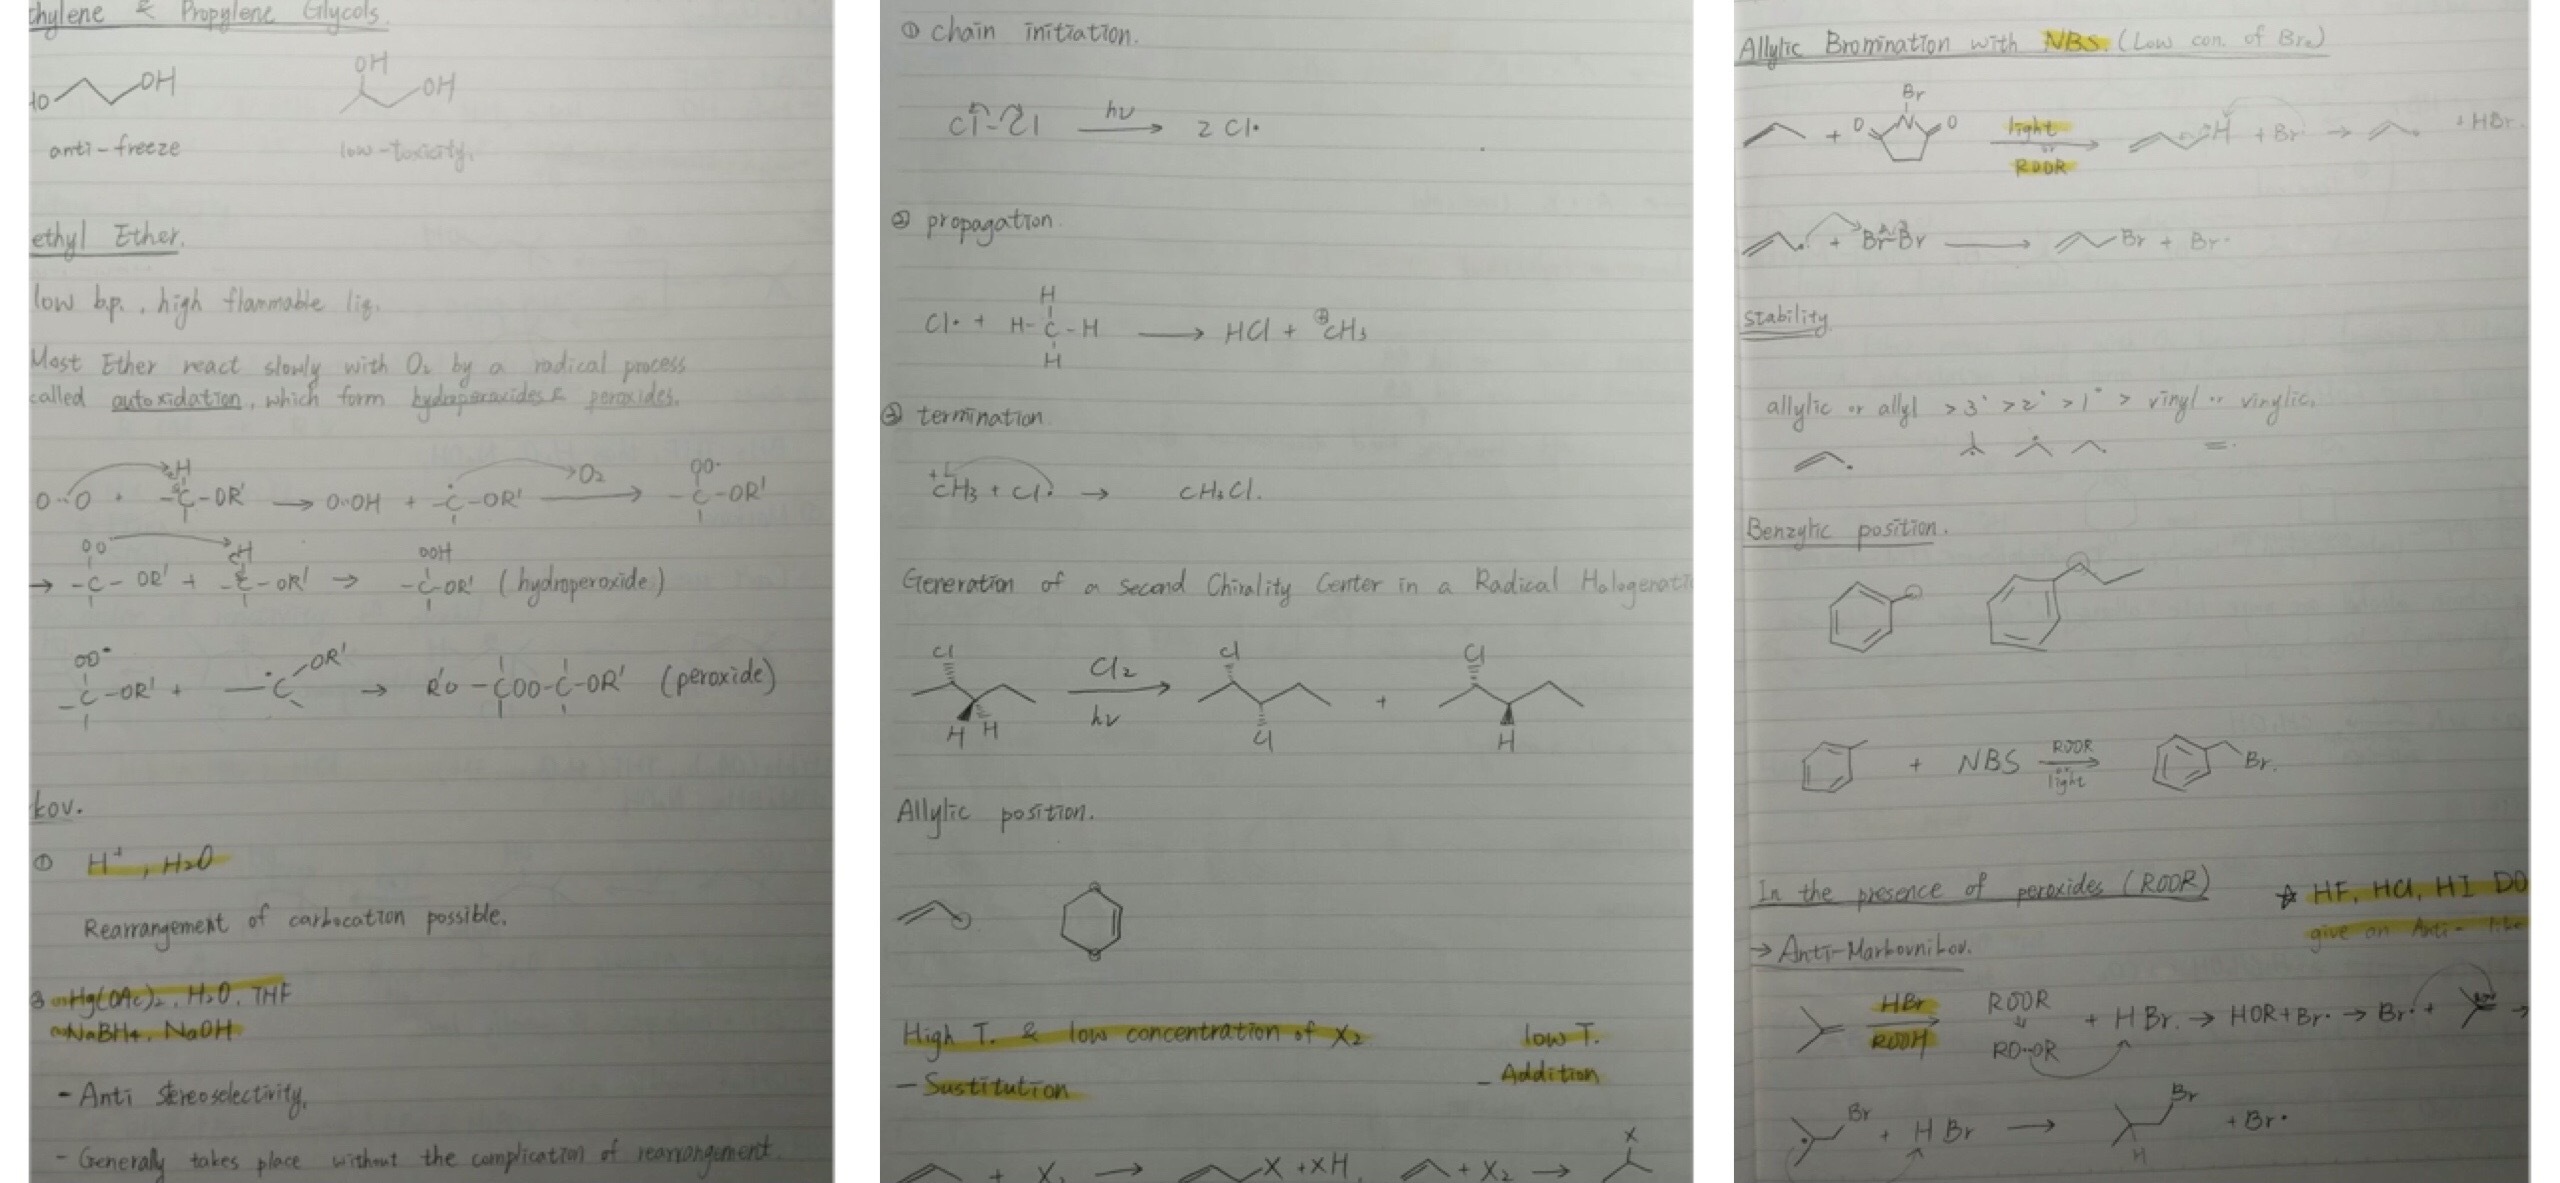 thylene & Propylene Glycols.
HO OH
OH
OH
anti-freeze low-toxicity.
ethyl Ether.
low b.p., high flammable liq.
Most Ether react slowly with O₂ by a radical process
called autoxidation, which form hydroperoxides & peroxides.
O··O + -C-OR' → O··OH + -C-OR' → O₂ OO· -C-OR'
H
OO H OOH
→ -C-OR' + -C-OR' → -C-OR' (hydroperoxide)
OO· OR'
-C-OR' + -C → R'O-COO-C-OR' (peroxide)
kov.
① H⁺, H₂O
Rearrangement of carbocation possible.
Hg(OAc)₂, H₂O, THF
NaBH₄, NaOH
- Anti stereoselectivity.
- Generally takes place without the complication of rearrangement.
① chain initiation.
Cl-Cl hν → 2 Cl·
② propagation.
H
Cl· + H-C-H → HCl + ⊕CH₃
H
③ termination
+CH₃ + Cl· → CH₃Cl.
Generation of a second Chirality Center in a Radical Halogenati
Cl Cl₂ Cl Cl
hν +
H H Cl H
Allylic position.
High T. & low concentration of X₂ low T.
- Sustitution - Addition
X
+ X₂ → X + XH, + X₂ →
Allylic Bromination with NBS. (Low con. of Br₂)
Br
+ O N O light H + Br· → · + HBr.
or
ROOR
· + Br-Br → Br + Br·
stability
allylic or allyl > 3° > 2° > 1° > vinyl or vinylic.
Benzylic position.
+ NBS ROOR Br.
or
light
In the presence of peroxides (ROOR) ☆ HF, HCl, HI DO
give an Anti-
→ Anti-Markovnikov.
HBr ROOR
+ H Br. → HOR + Br· → Br· + →
ROOH RO··OR
Br + H Br → Br + Br·
H